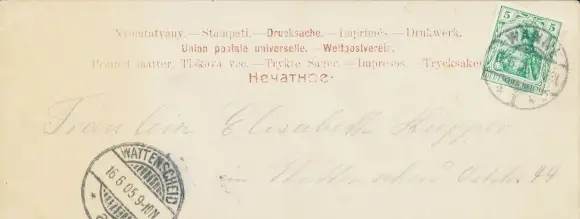 Nyomtatvány. — Stampati. — Drucksache. — Imprimés — Drukwerk.
Union postale universelle. — Weltpostverein.
Printed matter. Tiskova vec. — Trykte Sager. — Impresos. — Trycksaker
Нечатное.
5 5
DEUTSCHES REICH
Fräulein Elisabeth Küpper
in Wattenscheid Oststr. 44
WATTENSCHEID
16.6.05.9-10N.